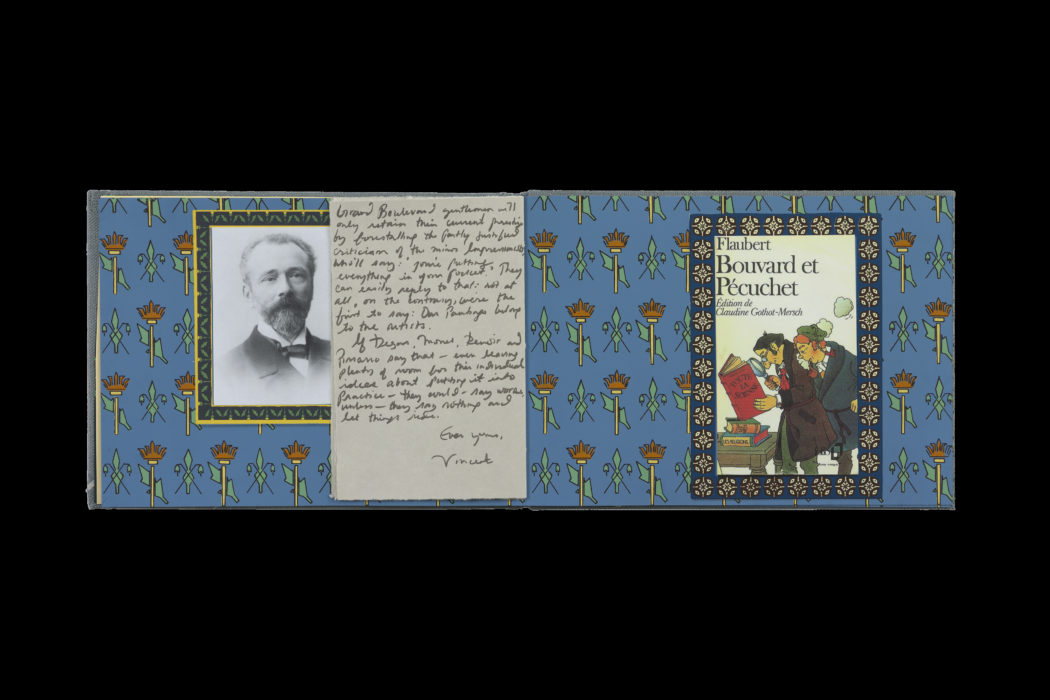 Grand Boulevard gentlemen will
only retain their current prestige
by forestalling the partly justified
criticism of the minor Impressionists
who'll say: 'you're putting
everything in your pocket.' They
can easily reply to that: not at
all, on the contrary, were the
first to say: Our Paintings belong
to the artists.
If Degas, Monet, Renoir and
Pissarro say that – even leaving
plenty of room for their individual
ideas about putting it into
Practice – they could – say worse,
unless – they say nothing and
let things ride.
Ever yours,
Vincent
Flaubert
Bouvard et
Pécuchet
Édition de
Claudine Gothot-Mersch
LES RELIGIONS